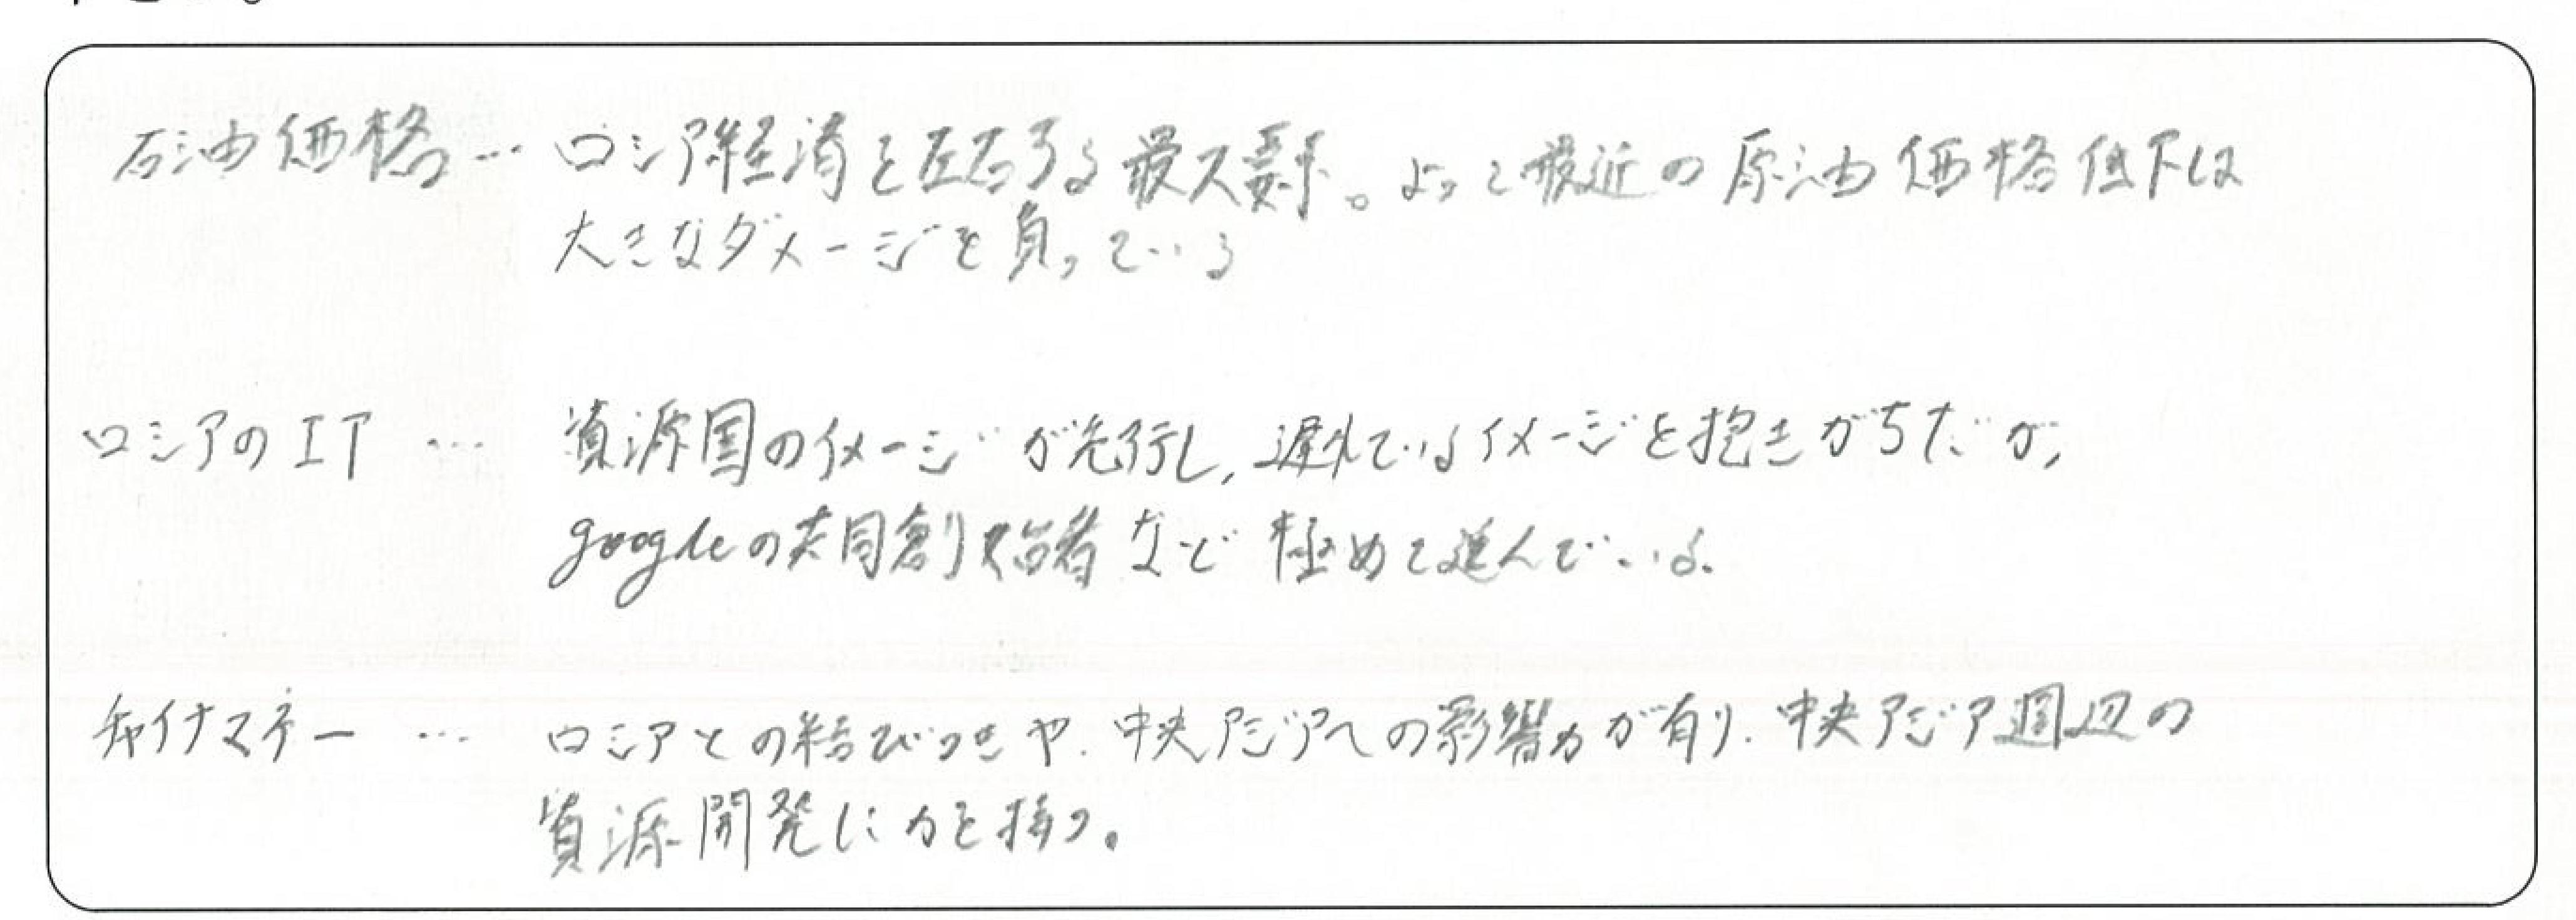 石油価格… ロシア経済を左右する最大要素。よって最近の原油価格低下は
大きなダメージを負っている
ロシアのIT … 資源国のイメージが先行し、遅れているイメージを抱きがちだが、
googleの共同創始者など極めて進んでいる。
チャイナマネー … ロシアとの結びつきや、中央アジアへの影響力が有り、中央アジア週辺の
資源開発に力を持つ。